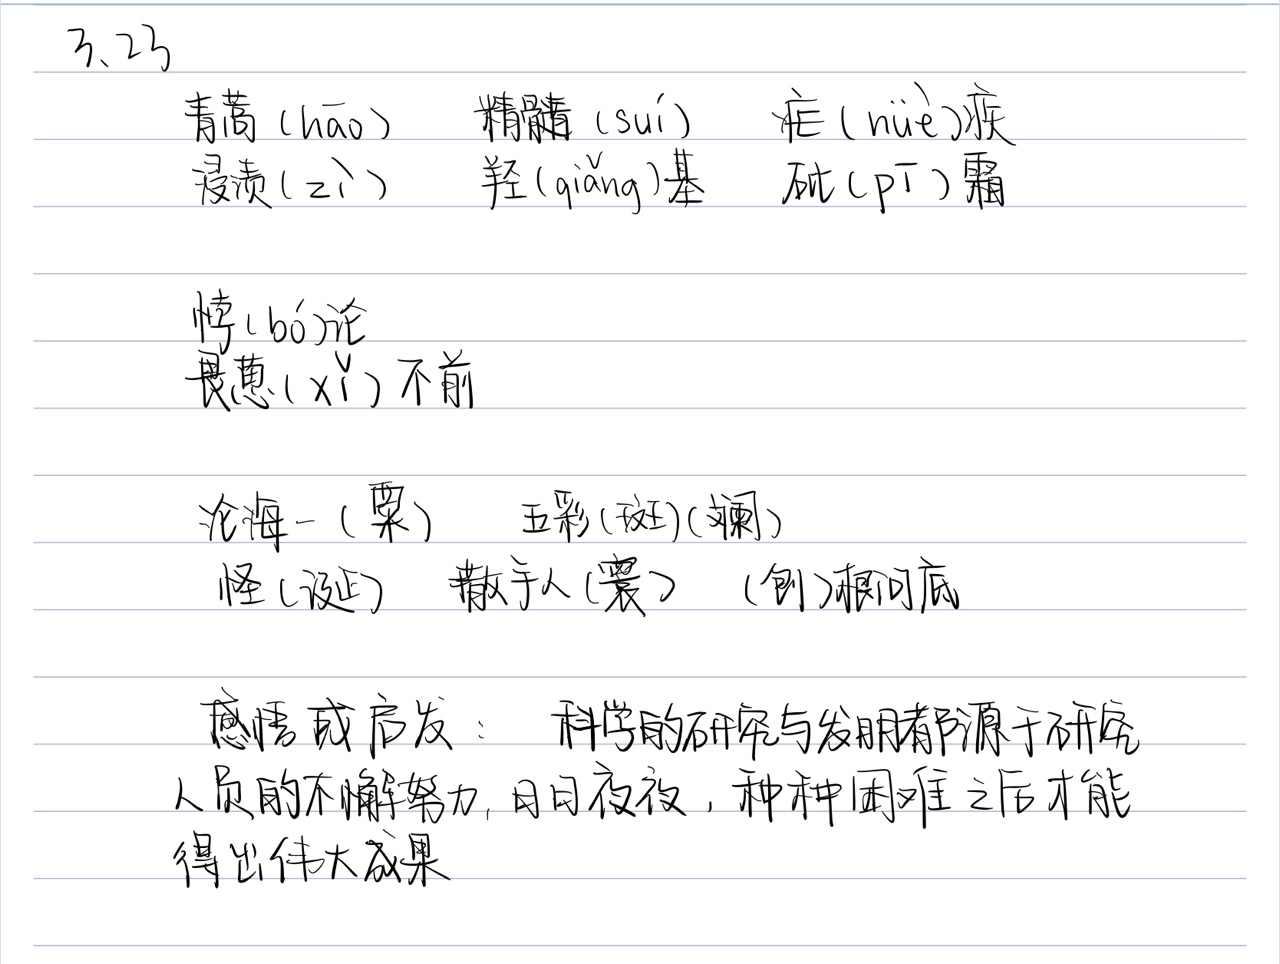 3.23
青蒿(hāo) 精髓(suí) 疟(nüè)疾
浸渍(zì) 羟(qiǎng)基 砒(pī)霜
悖(bó)论
畏葸(xǐ)不前
沧海一(粟) 五彩(斑)(斓)
怪(诞) 撒手人(寰) (刨)根问底
感悟或启发: 科学的研究与发明都源于研究
人员的不懈努力,日日夜夜,种种困难之后才能
得出伟大成果